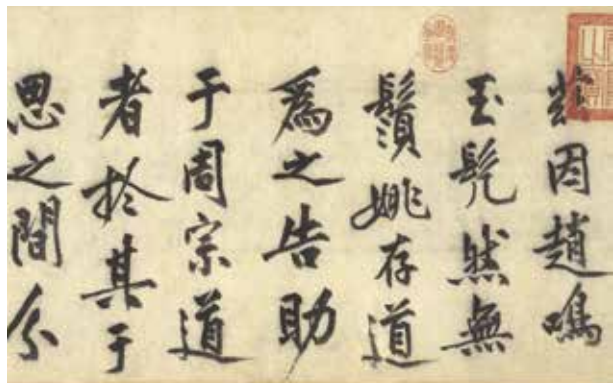 茲因趙鳴
玉髠然無
鬚姚存道
爲之告助
于周宗道
者於其于
思之間分